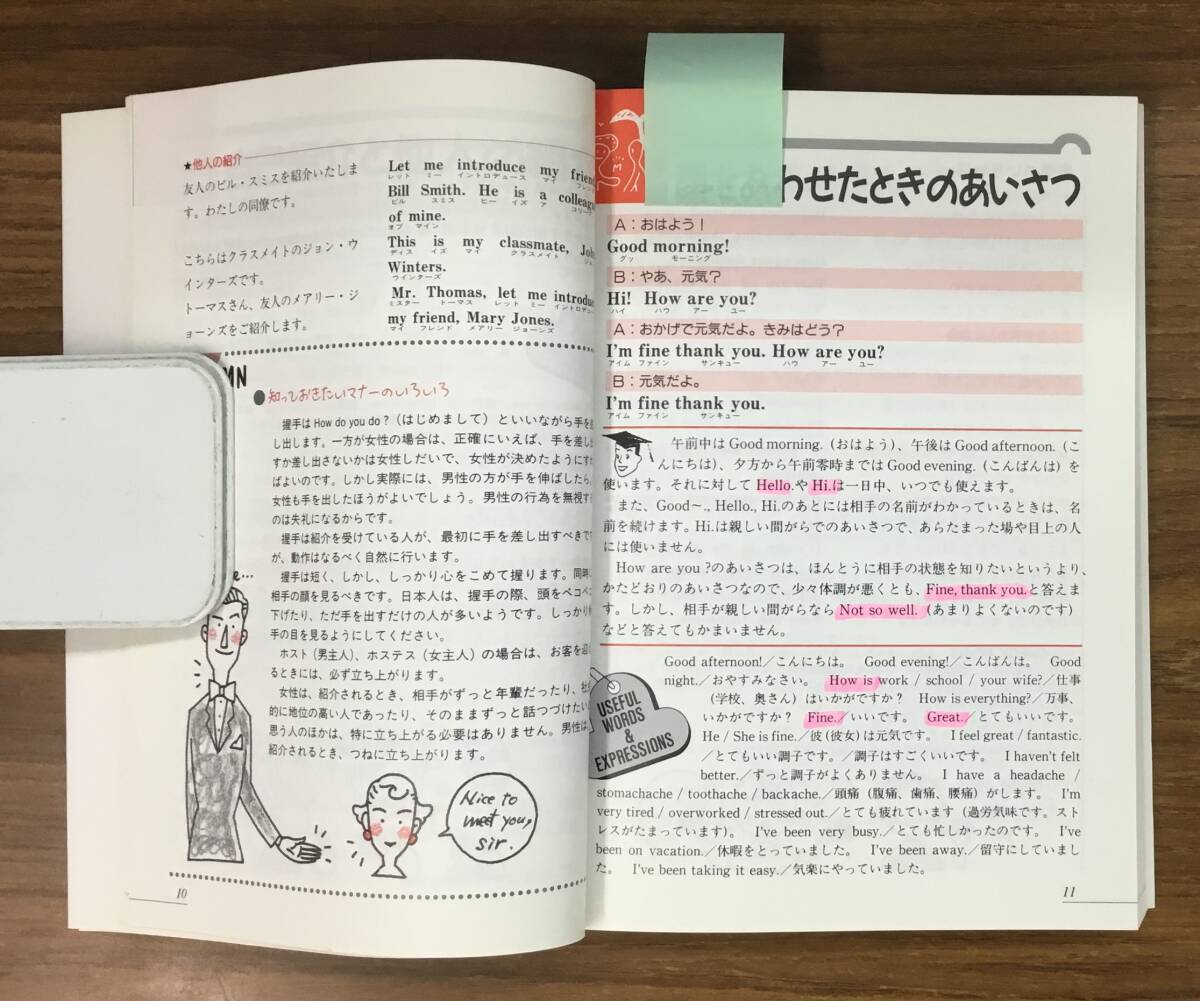 ★他人の紹介
友人のビル・スミスを紹介いたしま
す。わたしの同僚です。
こちらはクラスメイトのジョン・ウ
インターズです。
トーマスさん、友人のメアリー・ジ
ョーンズをご紹介します。
Let me introduce my friend
レット ミー イントロデュース マイ フレンド
Bill Smith. He is a colleag
ビル スミス ヒー イズ ア コリーグ
of mine.
オブ マイン
This is my classmate, Joh
ディス イズ マイ クラスメイト
Winters.
ウインターズ
Mr. Thomas, let me introdu
ミスター トーマス レット ミー イントロ
my friend, Mary Jones.
マイ フレンド メアリー ジョーンズ
MN
●知っておきたいマナーのいろいろ
握手は How do you do ?（はじめまして）といいながら手を
し出します。一方が女性の場合は、正確にいえば、手を差し出
すか差し出さないかは女性しだいで、女性が決めたようにすれ
ばよいのです。しかし実際には、男性の方が手を伸ばしたら、
女性も手を出したほうがよいでしょう。男性の行為を無視す
のは失礼になるからです。
握手は紹介を受けている人が、最初に手を差し出すべきで
が、動作はなるべく自然に行います。
握手は短く、しかし、しっかり心をこめて握ります。同時に
相手の顔を見るべきです。日本人は、握手の際、頭をペコペコ
下げたり、ただ手を出すだけの人が多いようです。しっかり
手の目を見るようにしてください。
ホスト（男主人）、ホステス（女主人）の場合は、お客を迎
るときには、必ず立ち上がります。
女性は、紹介されるとき、相手がずっと年輩だったり、社
的に地位の高い人であったり、そのままずっと話つづけたい
思う人のほかは、特に立ち上がる必要はありません。男性は
紹介されるとき、つねに立ち上がります。
e…
Nice to
meet you,
sir.
10
わせたときのあいさつ
A：おはよう！
Good morning!
グッ モーニング
B：やあ、元気？
Hi! How are you?
ハイ ハウ アー ユー
A：おかげで元気だよ。きみはどう？
I'm fine thank you. How are you?
アイム ファイン サンキュー ハウ アー ユー
B：元気だよ。
I'm fine thank you.
アイム ファイン サンキュー
午前中は Good morning.（おはよう）、午後は Good afternoon.（こ
んにちは）、夕方から午前零時までは Good evening.（こんばんは）を
使います。それに対して Hello. や Hi. は一日中、いつでも使えます。
また、Good～., Hello., Hi.のあとには相手の名前がわかっているときは、名
前を続けます。Hi.は親しい間がらでのあいさつで、あらたまった場や目上の人
には使いません。
How are you ?のあいさつは、ほんとうに相手の状態を知りたいというより、
かたどおりのあいさつなので、少々体調が悪くとも、Fine, thank you. と答えま
す。しかし、相手が親しい間がらなら Not so well.（あまりよくないのです）
などと答えてもかまいません。
USEFUL
WORDS
&
EXPRESSIONS
Good afternoon!／こんにちは。 Good evening!／こんばんは。 Good
night.／おやすみなさい。 How is work / school / your wife?／仕事
（学校、奥さん）はいかがですか？ How is everything?／万事、
いかがですか？ Fine.／いいです。 Great.／とてもいいです。
He / She is fine.／彼(彼女)は元気です。 I feel great / fantastic.
／とてもいい調子です。／調子はすごくいいです。 I haven't felt
better.／ずっと調子がよくありません。 I have a headache /
stomachache / toothache / backache.／頭痛（腹痛、歯痛、腰痛）がします。 I'm
very tired / overworked / stressed out.／とても疲れています（過労気味です。スト
レスがたまっています）。 I've been very busy.／とても忙しかったのです。 I've
been on vacation.／休暇をとっていました。 I've been away.／留守にしていまし
た。 I've been taking it easy.／気楽にやっていました。
11